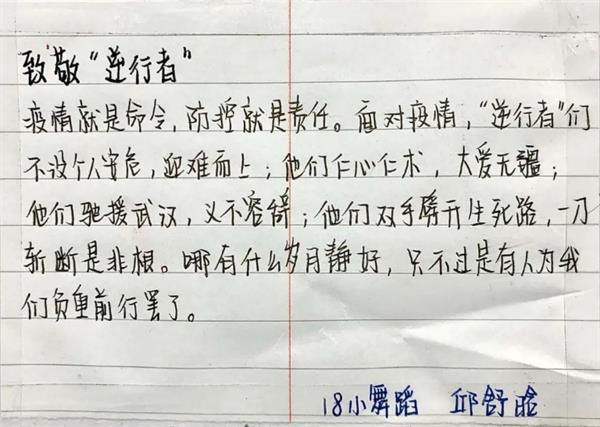 致敬“逆行者”
疫情就是命令，防控就是责任。面对疫情，“逆行者”们
不设个人安危，迎难而上；他们仁心仁术，大爱无疆；
他们驰援武汉，义不容辞；他们双手劈开生死路，一刀
斩断是非根。哪有什么岁月静好，只不过是有人为我
们负重前行罢了。
18小舞蹈 邱舒晗